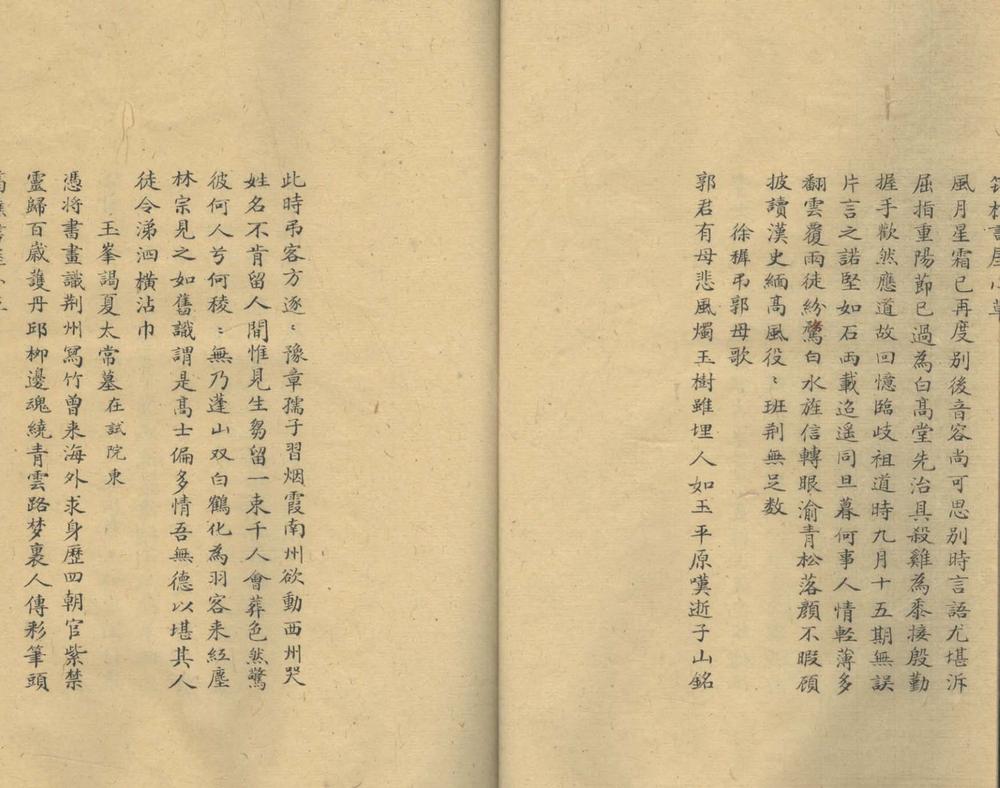 風月星霜已再度別後音容尚可思別時言語尤堪訴
屈指重陽節已過為白髙堂先治具殺雞為黍接殷勤
握手歡然應道故回憶臨歧祖道時九月十五期無誤
片言之諾堅如石両載迢遥同旦暮何事人情輕薄多
翻雲覆雨徒紛驚白水旌信轉眼渝青松落顔不暇顧
披讀漢史緬髙風役〻班荆無足数
徐穉弔郭母歌
郭君有母悲風燭玉樹雖埋人如玉平原嘆逝子山銘
此時弔客方逐〻豫章孺子習烟霞南州欲動西州哭
姓名不肯留人間惟見生芻留一束千人會葬色然驚
彼何人兮何稜〻無乃蓬山双白鶴化為羽客来紅塵
林宗見之如舊識謂是髙士偏多情吾無德以堪其人
徒令涕泗横沾巾
玉峯謁夏太常墓在試院東
憑将書畫識荆州冩竹曾来海外求身歷四朝官紫禁
靈歸百歲護丹邱柳邊魂繞青雲路梦裏人傳彩筆頭